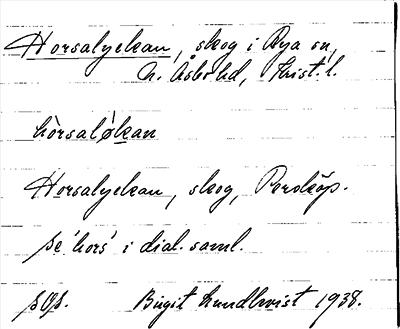 Horsalyckan, skog i Rya sn,
N. Åsbo hd, Krist. l.
hòrsaløkan
Horsalyckan, skog, Perstorp.
se 'hors' i dial. saml.
Birgit Lundkvist 1938.